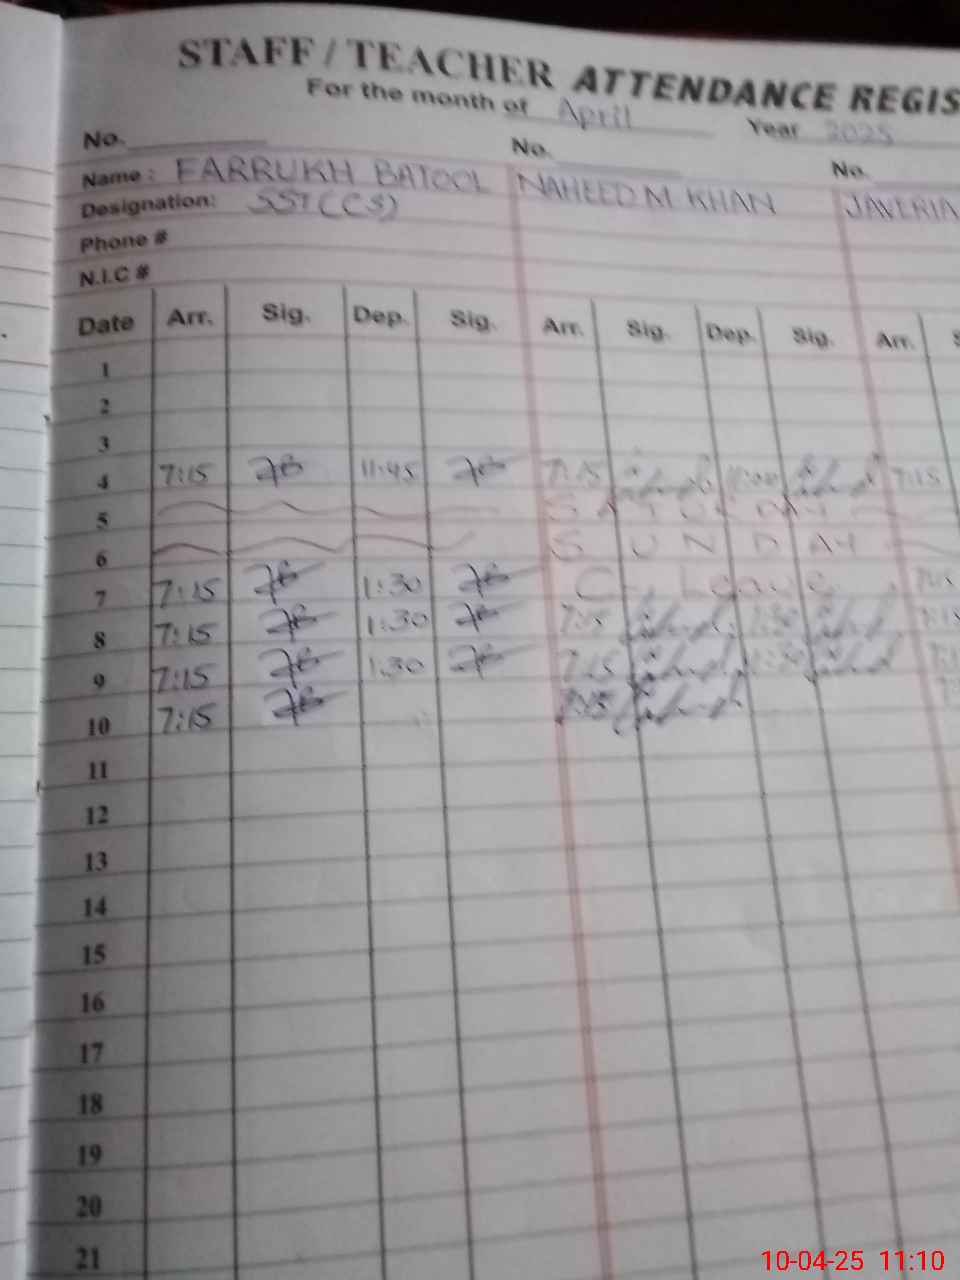 STAFF / TEACHER ATTENDANCE REGIS
For the month of April Year 2025
No. No. No.
Name: FARRUKH BATOOL NAHEED M. KHAN JAVERIA
Designation: SST (CS)
Phone #
N.I.C #
Date Arr. Sig. Dep. Sig. Arr. Sig. Dep. Sig. Arr. S
1
2
3
4 7:15 11:45 7:15 7:15
5 SATURDAY
6 SUNDAY
7 7:15 1:30 C. Leave
8 7:15 1:30 7:15 1:30
9 7:15 1:30 7:15 1:30
10 7:15 7:15
11
12
13
14
15
16
17
18
19
20
21
10-04-25 11:10